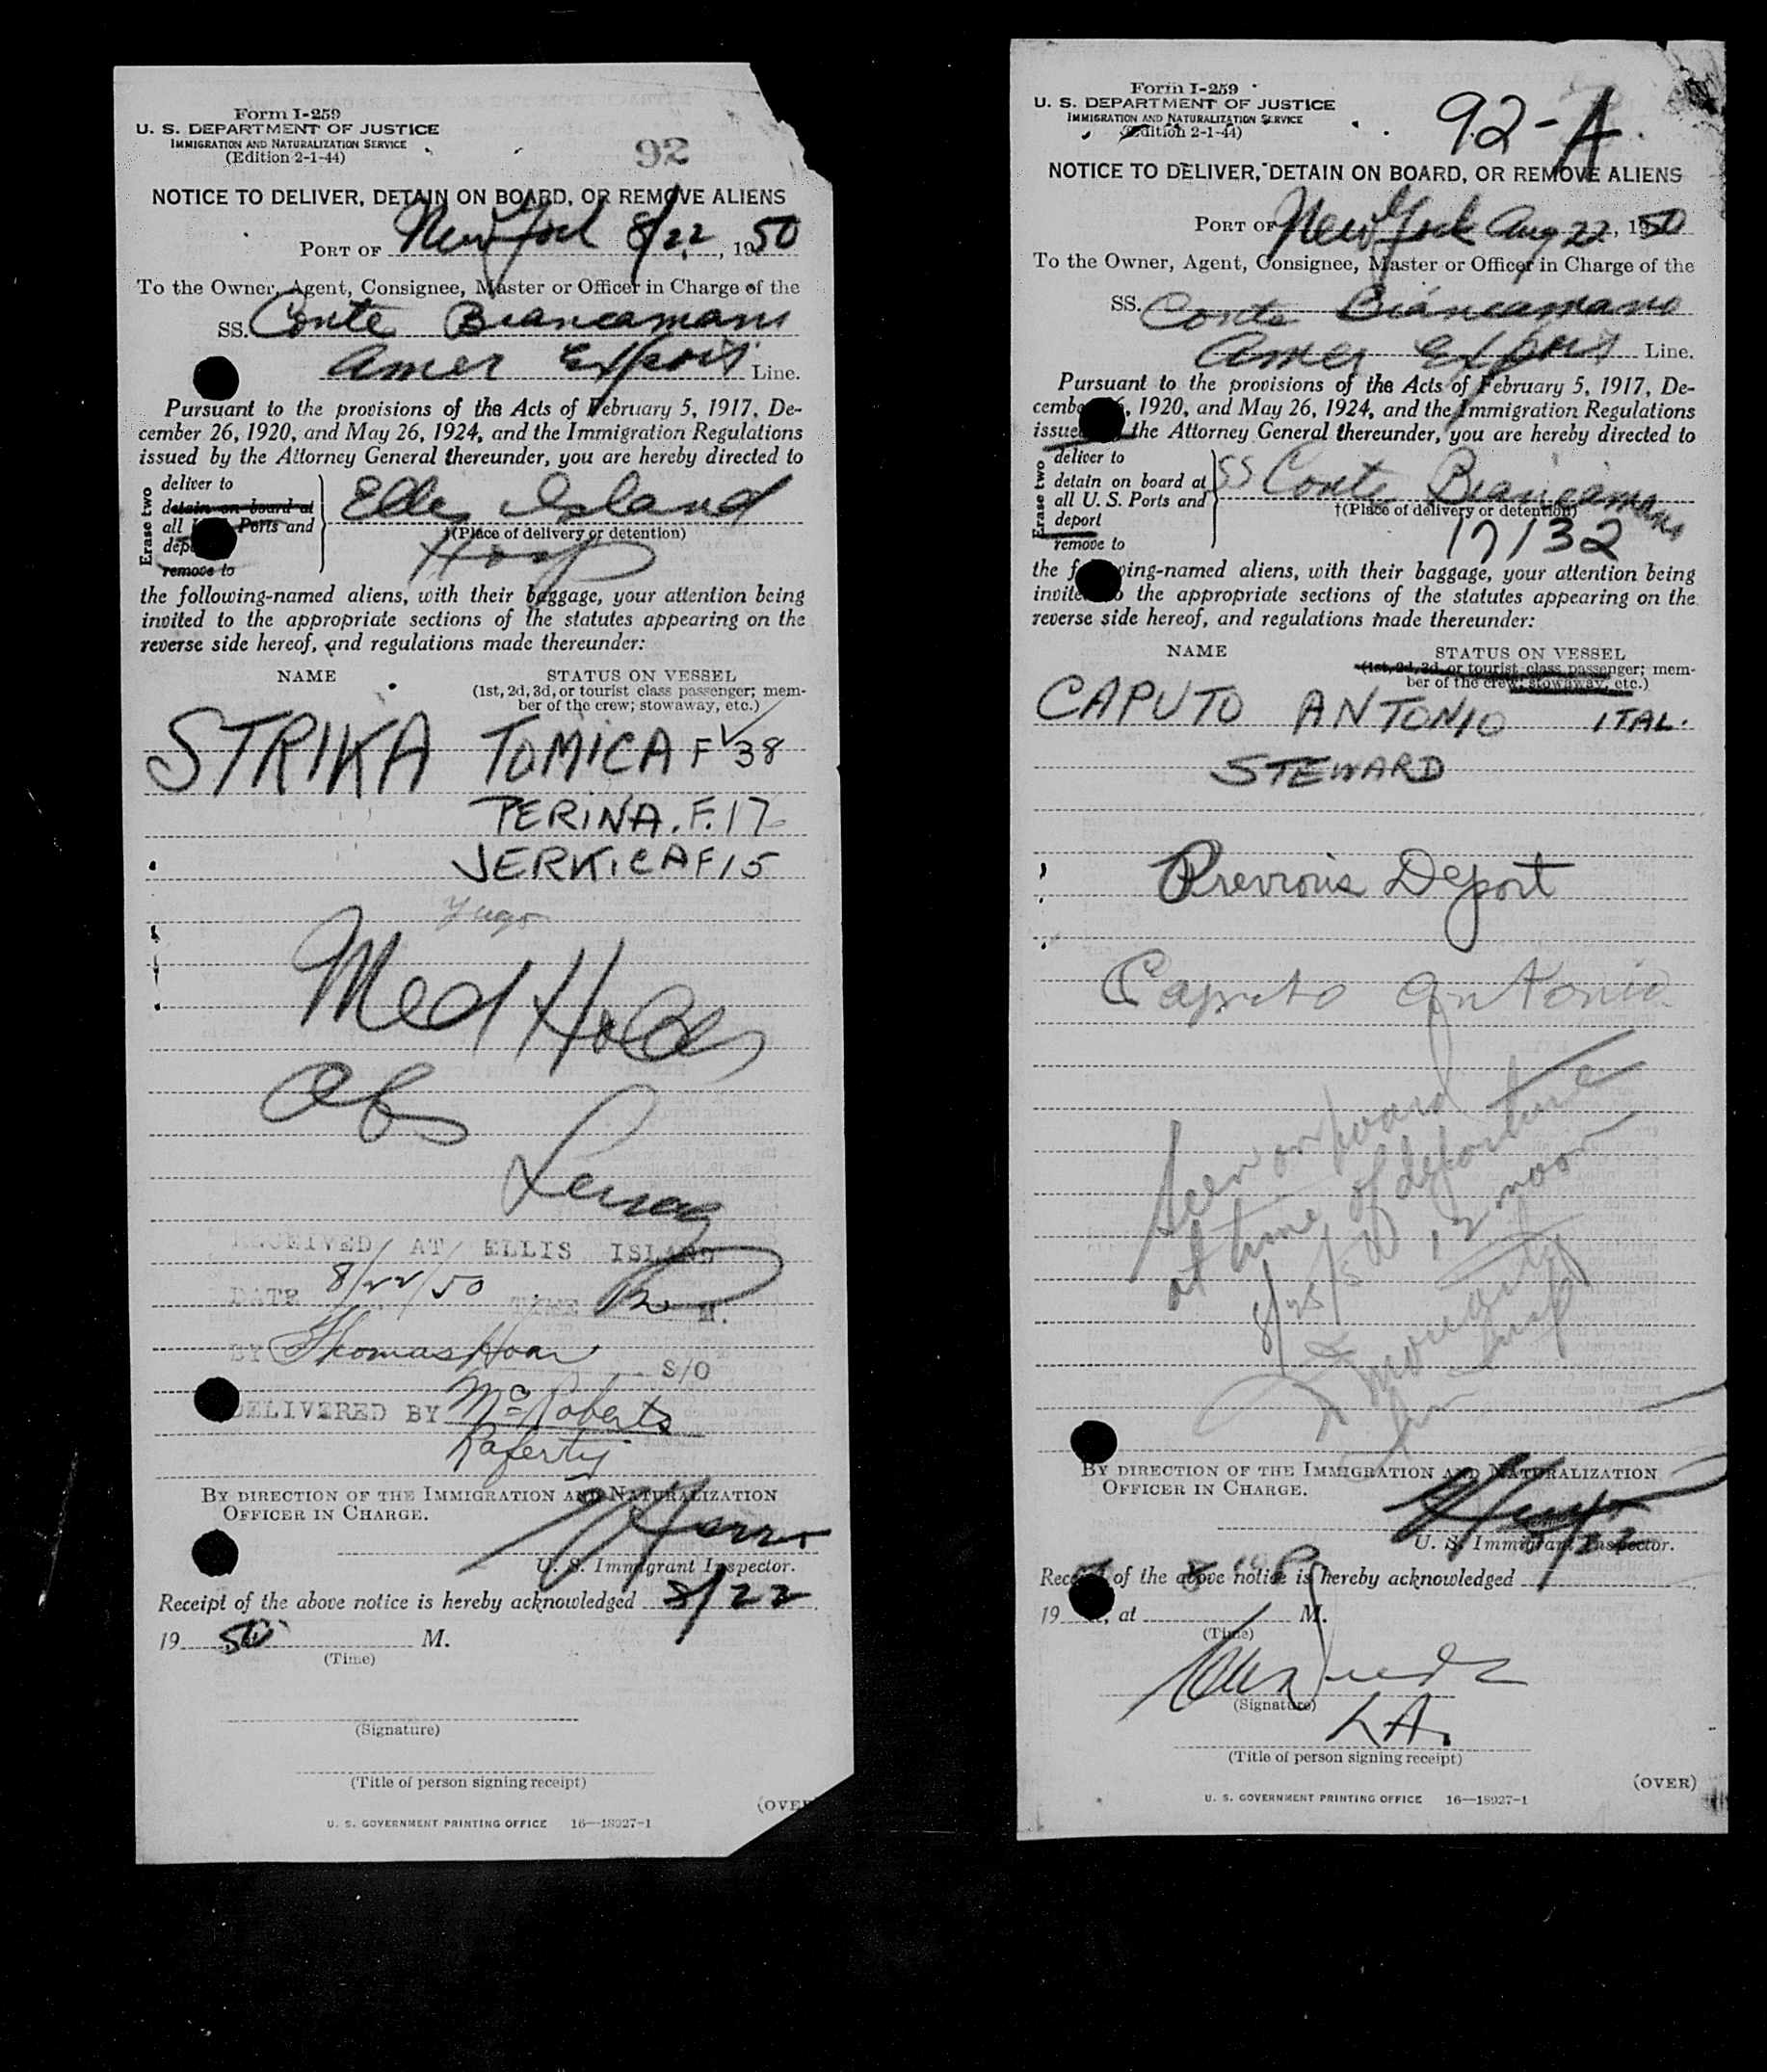 Form I-259
U. S. DEPARTMENT OF JUSTICE
IMMIGRATION AND NATURALIZATION SERVICE
(Edition 2-1-44)
92
NOTICE TO DELIVER, DETAIN ON BOARD, OR REMOVE ALIENS
PORT OF New York 8/22, 1950
To the Owner, Agent, Consignee, Master or Officer in Charge of the
SS. Conte Biancamano
Amer Export Line.
Pursuant to the provisions of the Acts of February 5, 1917, De-
cember 26, 1920, and May 26, 1924, and the Immigration Regulations
issued by the Attorney General thereunder, you are hereby directed to
Erase two
deliver to
detain on board at
all Ports and
remove to
Ellis Island
†(Place of delivery or detention)
Hosp
the following-named aliens, with their baggage, your attention being
invited to the appropriate sections of the statutes appearing on the
reverse side hereof, and regulations made thereunder:
NAME STATUS ON VESSEL
(1st, 2d, 3d, or tourist class passenger; mem-
ber of the crew; stowaway, etc.)
STRIKA TOMICA F 38
PERINA. F. 17
JERKICA F 15
Yugo
Med Hold
Obs
RECEIVED AT ELLIS ISLAND
DATE 8/22/50 TIME M.
BY Thomas Hoar S/O
DELIVERED BY McRoberts
Raferty
BY DIRECTION OF THE IMMIGRATION AND NATURALIZATION
OFFICER IN CHARGE.
U. S. Immigrant Inspector.
Receipt of the above notice is hereby acknowledged 8/22
1950 M.
(Time)
(Signature)
(Title of person signing receipt)
(OVER
U. S. GOVERNMENT PRINTING OFFICE 16—18927-1
Form I-259
U. S. DEPARTMENT OF JUSTICE
IMMIGRATION AND NATURALIZATION SERVICE
(Edition 2-1-44)
92-A
NOTICE TO DELIVER, DETAIN ON BOARD, OR REMOVE ALIENS
PORT OF New York Aug 22, 1950
To the Owner, Agent, Consignee, Master or Officer in Charge of the
SS. Conte Biancamano
Amer Export Line.
Pursuant to the provisions of the Acts of February 5, 1917, De-
cember 26, 1920, and May 26, 1924, and the Immigration Regulations
issued the Attorney General thereunder, you are hereby directed to
Erase two
deliver to
detain on board at
all U. S. Ports and
deport
remove to
SS Conte Biancamano
†(Place of delivery or detention)
17132
the following-named aliens, with their baggage, your attention being
invited to the appropriate sections of the statutes appearing on the
reverse side hereof, and regulations made thereunder:
NAME STATUS ON VESSEL
(1st, 2d, 3d, or tourist class passenger; mem-
ber of the crew; stowaway, etc.)
CAPUTO ANTONIO ITAL.
STEWARD
Previous Deport
Caputo Antonio
Seen on board
at time of departure
8/25/50 12 noon
BY DIRECTION OF THE IMMIGRATION AND NATURALIZATION
OFFICER IN CHARGE.
U. S. Immigrant Inspector.
8/22
Receipt of the above notice is hereby acknowledged
19 , at M.
(Time)
(Signature)
(Title of person signing receipt)
(OVER)
U. S. GOVERNMENT PRINTING OFFICE 16—18927-1